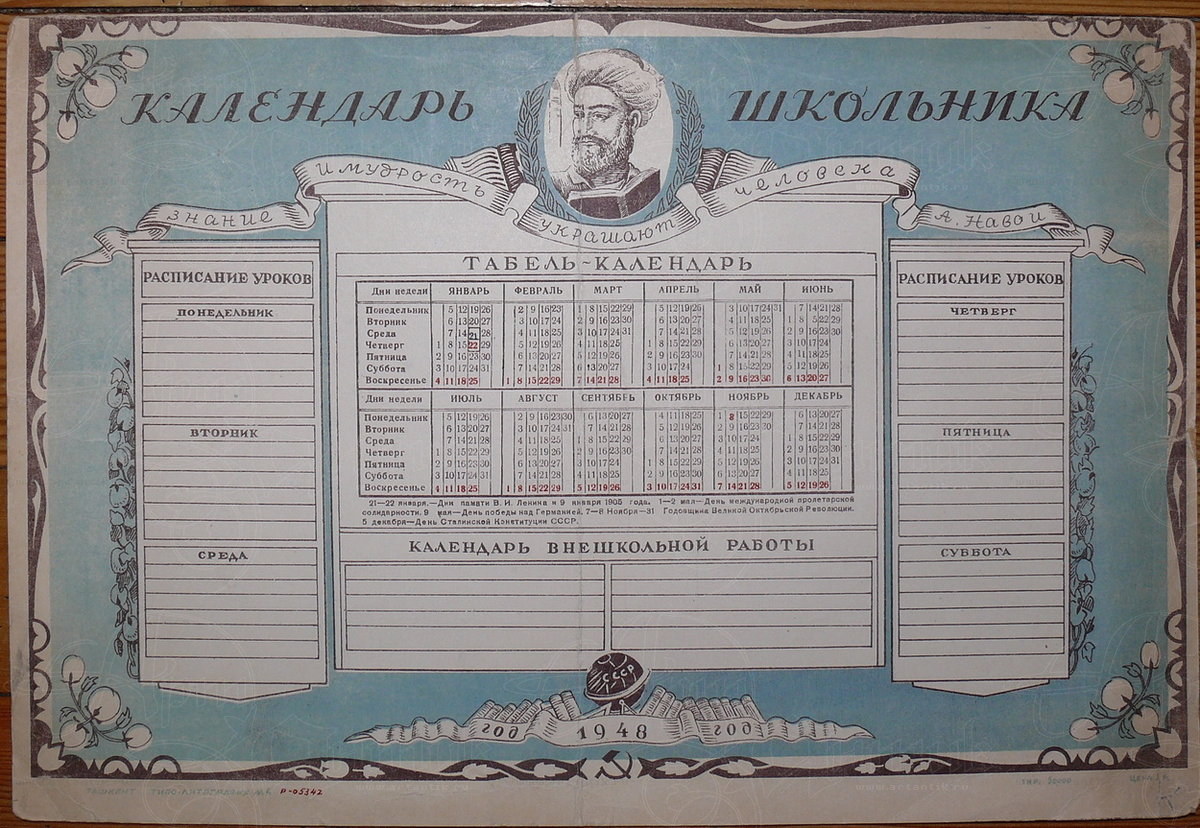 КАЛЕНДАРЬ ШКОЛЬНИКА
ЗНАНИЕ И МУДРОСТЬ УКРАШАЮТ ЧЕЛОВЕКА А. НАВОИ
РАСПИСАНИЕ УРОКОВ
ПОНЕДЕЛЬНИК
ВТОРНИК
СРЕДА
ТАБЕЛЬ-КАЛЕНДАРЬ
Дни недели ЯНВАРЬ ФЕВРАЛЬ МАРТ АПРЕЛЬ МАЙ ИЮНЬ
Понедельник 5 12 19 26 2 9 16 23 1 8 15 22 29 5 12 19 26 3 10 17 24 31 7 14 21 28
Вторник 6 13 20 27 3 10 17 24 2 9 16 23 30 6 13 20 27 4 11 18 25 1 8 15 22 29
Среда 7 14 21 28 4 11 18 25 3 10 17 24 31 7 14 21 28 5 12 19 26 2 9 16 23 30
Четверг 1 8 15 22 29 5 12 19 26 4 11 18 25 1 8 15 22 29 6 13 20 27 3 10 17 24
Пятница 2 9 16 23 30 6 13 20 27 5 12 19 26 2 9 16 23 30 7 14 21 28 4 11 18 25
Суббота 3 10 17 24 31 7 14 21 28 6 13 20 27 3 10 17 24 1 8 15 22 29 5 12 19 26
Воскресенье 4 11 18 25 1 8 15 22 29 7 14 21 28 4 11 18 25 2 9 16 23 30 6 13 20 27
Дни недели ИЮЛЬ АВГУСТ СЕНТЯБРЬ ОКТЯБРЬ НОЯБРЬ ДЕКАБРЬ
Понедельник 5 12 19 26 2 9 16 23 30 6 13 20 27 4 11 18 25 1 8 15 22 29 6 13 20 27
Вторник 6 13 20 27 3 10 17 24 31 7 14 21 28 5 12 19 26 2 9 16 23 30 7 14 21 28
Среда 7 14 21 28 4 11 18 25 1 8 15 22 29 6 13 20 27 3 10 17 24 1 8 15 22 29
Четверг 1 8 15 22 29 5 12 19 26 2 9 16 23 30 7 14 21 28 4 11 18 25 2 9 16 23 30
Пятница 2 9 16 23 30 6 13 20 27 3 10 17 24 1 8 15 22 29 5 12 19 26 3 10 17 24 31
Суббота 3 10 17 24 31 7 14 21 28 4 11 18 25 2 9 16 23 30 6 13 20 27 4 11 18 25
Воскресенье 4 11 18 25 1 8 15 22 29 5 12 19 26 3 10 17 24 31 7 14 21 28 5 12 19 26
21—22 января.—Дни памяти В. И. Ленина и 9 января 1905 года. 1—2 мая—День международной пролетарской
солидарности. 9 мая—День победы над Германией. 7—8 Ноября—31 Годовщина Великой Октябрьской Революции.
5 декабря—День Сталинской Конституции СССР.
КАЛЕНДАРЬ ВНЕШКОЛЬНОЙ РАБОТЫ
РАСПИСАНИЕ УРОКОВ
ЧЕТВЕРГ
ПЯТНИЦА
СУББОТА
СССР
ГОД 1948 ГОД
ТАШКЕНТ Р-05342